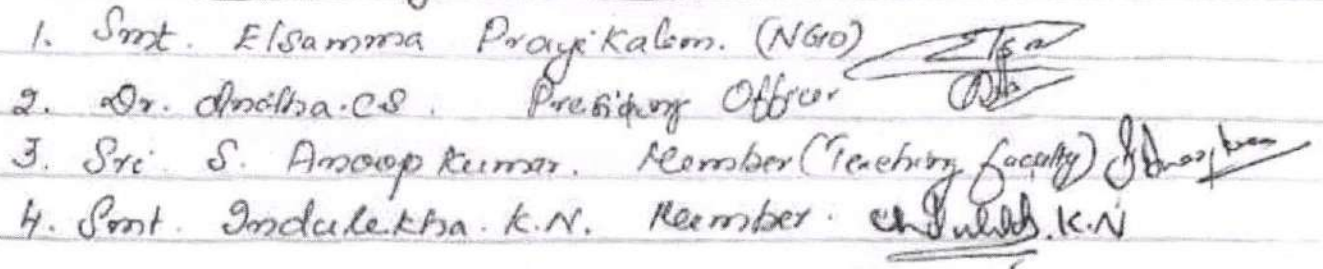 1. Smt. Elsamma Prayikalam. (NGO) Elsa
2. Dr. Anitha.C.S. Presiding Officer
3. Sri S. Anoop Kumar. Member (Teaching faculty)
4. Smt. Indulekha. K.N. Member. K.N